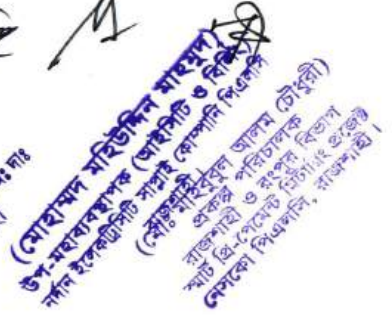 (মোহাম্মদ মহিউদ্দিন মাহমুদ)
উপ-মহাব্যবস্থাপক (আইসিটি ও বিলিং)
নর্দান ইলেকট্রিসিটি সাপ্লাই কোম্পানি পিএলসি
(মোঃ মাহবুবুল আলম চৌধুরী)
প্রকল্প পরিচালক
রাজশাহী ও রংপুর বিভাগ
স্মার্ট প্রি-পেমেন্ট মিটারিং প্রজেক্ট
নেসকো পিএলসি, রাজশাহী।